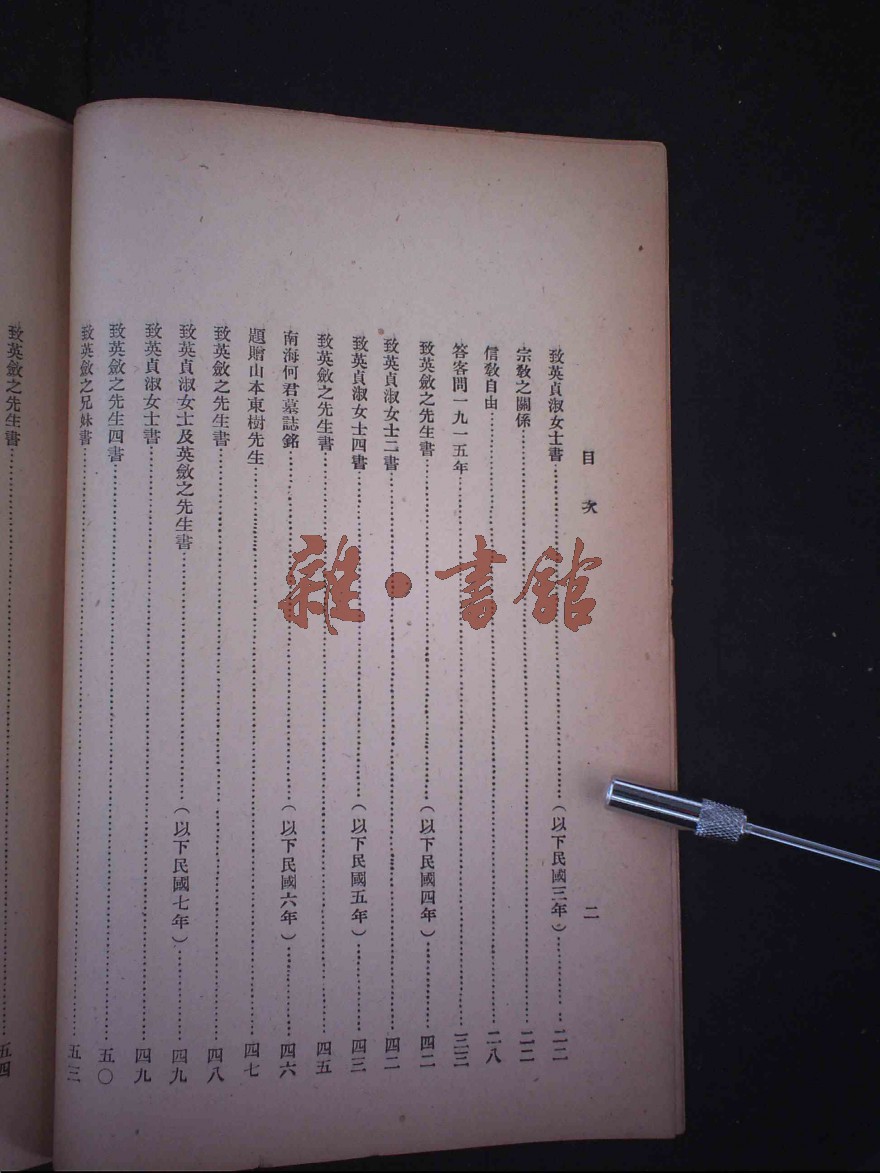 目次
二
致英貞淑女士書……(以下民國三年)……二二
宗教之關係……二二
信教自由……二八
答客問一九一五年……三三
致英斂之先生書……(以下民國四年)……四二
致英貞淑女士二書……四二
致英貞淑女士四書……(以下民國五年)……四三
致英斂之先生書……四五
南海何君墓誌銘……(以下民國六年)……四六
題贈山本東樹先生……四七
致英斂之先生書……四八
致英貞淑女士及英斂之先生書……(以下民國七年)……四九
致英貞淑女士書……四九
致英斂之先生四書……五〇
致英斂之兄妹書……五三
致英斂之先生書……五四
雜·書館